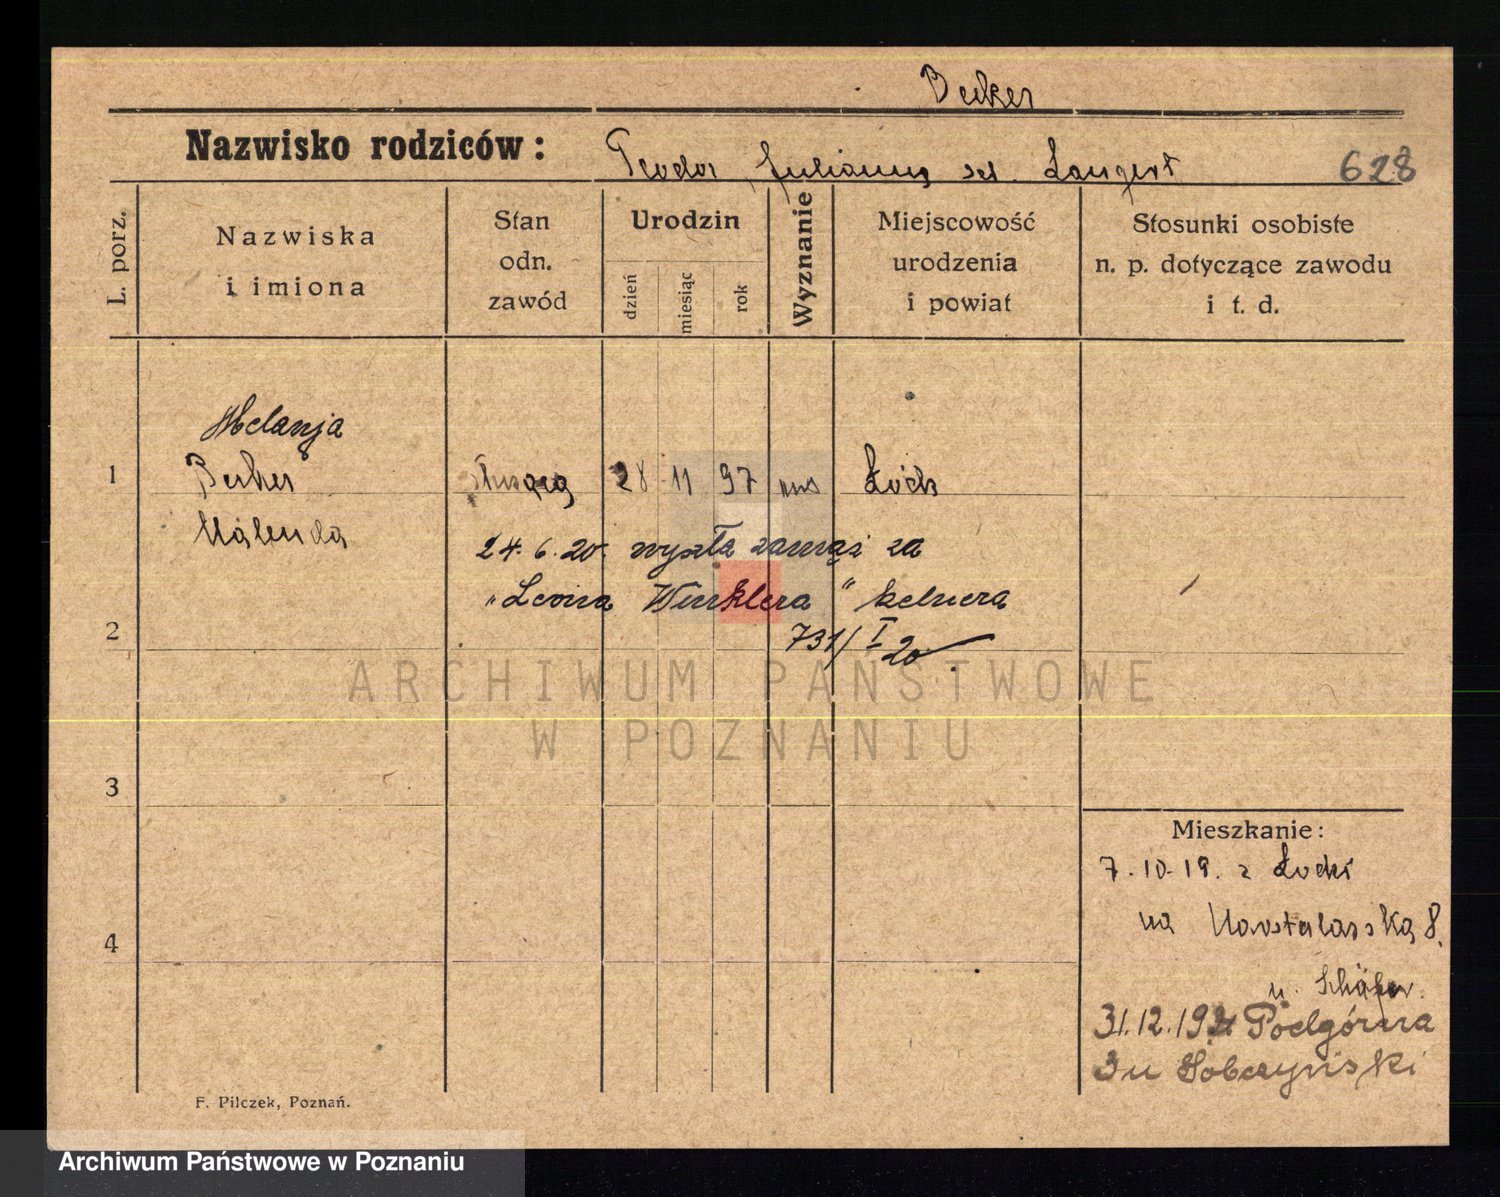 Beker
Nazwisko rodziców :
Teodor, Julianna sd. Langert
628
L. porz.
Nazwiska
i imiona
Stan
odn.
zawód
Urodzin
dzień
miesiąc
rok
Wyznanie
Miejscowość
urodzenia
i powiat
Stosunki osobiste
n. p. dotyczące zawodu
i t. d.
Melanja
1 Beker służąca 28 11 97 Łódź
24. 6. 20. wyszła zamąż za
„Leona Winklera" kelnera
2
731/I 20
ARCHIWUM PAŃSTWOWE
W POZNANIU
3
Mieszkanie:
7.10.19. z Łodzi
na 8.
4
u. Schäfer.
31.12.1921 Podgórna
3 u Sobczyński
F. Pilczek, Poznań.
Archiwum Państwowe w Poznaniu